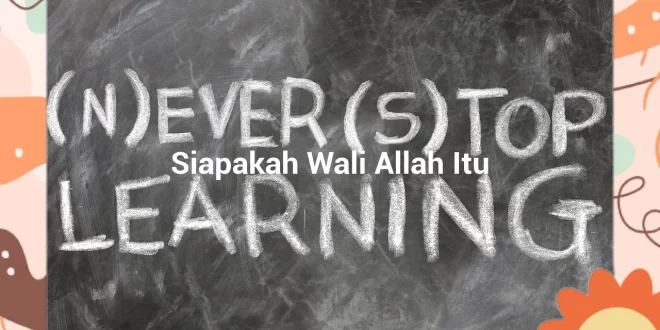 (N)EVER (S)TOP
Siapakah Wali Allah Itu
LEARNING